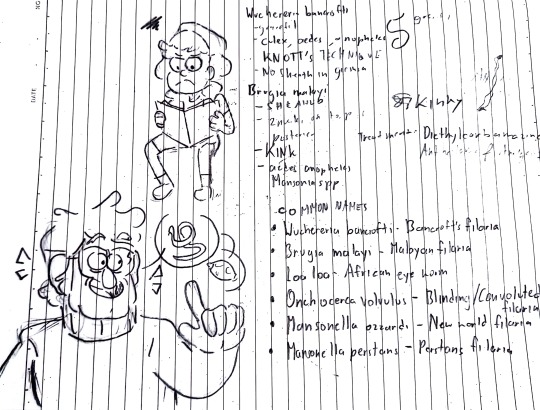 Wuchereria bancrofti
- culex, aedes, anopheles
KNOTT'S TECHNIQUE
- No sheath in
Brugia malayi
- SHEATHED
- 2 nuclei
posterior
Kinky
- KINK
Treatment: Diethylcarbamazine
- aedes anopheles
Mansonia spp
COMMON NAMES
• Wuchereria bancrofti - Bancroft's filaria
• Brugia malayi - Malayan filaria
• Loa loa - African eye worm
• Onchocerca volvulus - Blinding/Convoluted
filaria
• Mansonella ozzardi - New world filaria
• Mansonella perstans - Perstans filaria
DATE